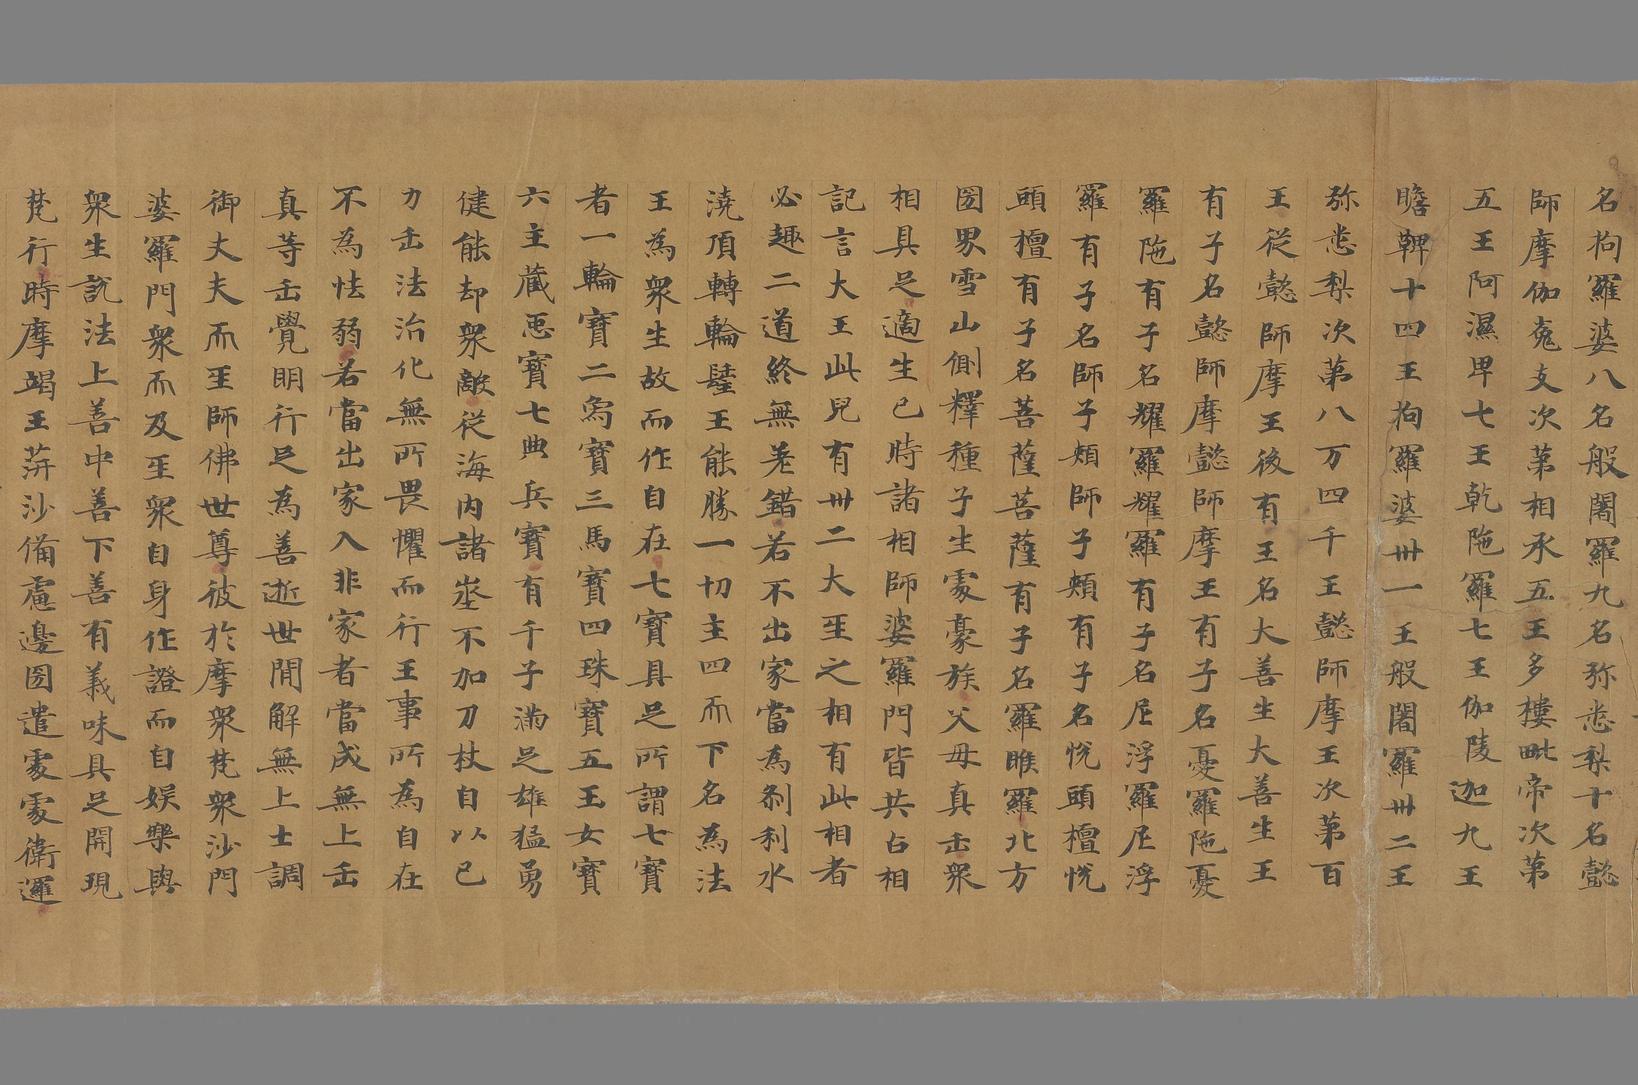 名拘羅婆八名般闍羅九名弥悉梨十名懿
師摩伽㝹支次第相承五王多樓毗帝次第
五王阿濕卑七王乾陁羅七王伽陵迦九王
瞻鞞十四王拘羅婆卅一王般闍羅卅二王
弥悉梨次第八万四千王懿師摩王次第百
王從懿師摩王後有王名大善生大善生王
有子名懿師摩懿師摩王有子名憂羅陁憂
羅陁有子名耀羅耀羅有子名尼浮羅尼浮
羅有子名師子頰師子頰有子名悅頭檀悅
頭檀有子名菩薩菩薩有子名羅睺羅北方
圀界雪山側釋種子生處豪族父母真𠙺衆
相具足適生已時諸相師婆羅門皆共占相
記言大王此兒有卅二大𤯔之相有此相者
必趣二道終無差錯若不出家當為刹利水
澆頂轉輪𨲢王能勝一切主四𠀑下名為法
王為衆生故而作自在七寶具足所謂七寶
者一輪寶二象寶三馬寶四珠寶五玉女寶
六主藏𢘑寶七典兵寶有千子滿足雄猛勇
健能却衆敵從海内諸埊不加刀杖自以已
力𠙺法治化無所畏懼而行王事所為自在
不為怯弱若當出家入非家者當成無上𠙺
真等𠙺覺明行足為善逝世間解無上士調
御丈夫𠀑𤯔師佛世尊彼於摩衆梵衆沙門
婆羅門衆𠀑及𤯔衆自身作證而自娛樂與
衆生說法上善中善下善有義味具足開現
梵行時摩竭王蓱沙備慮邊圀遣處處衛邏